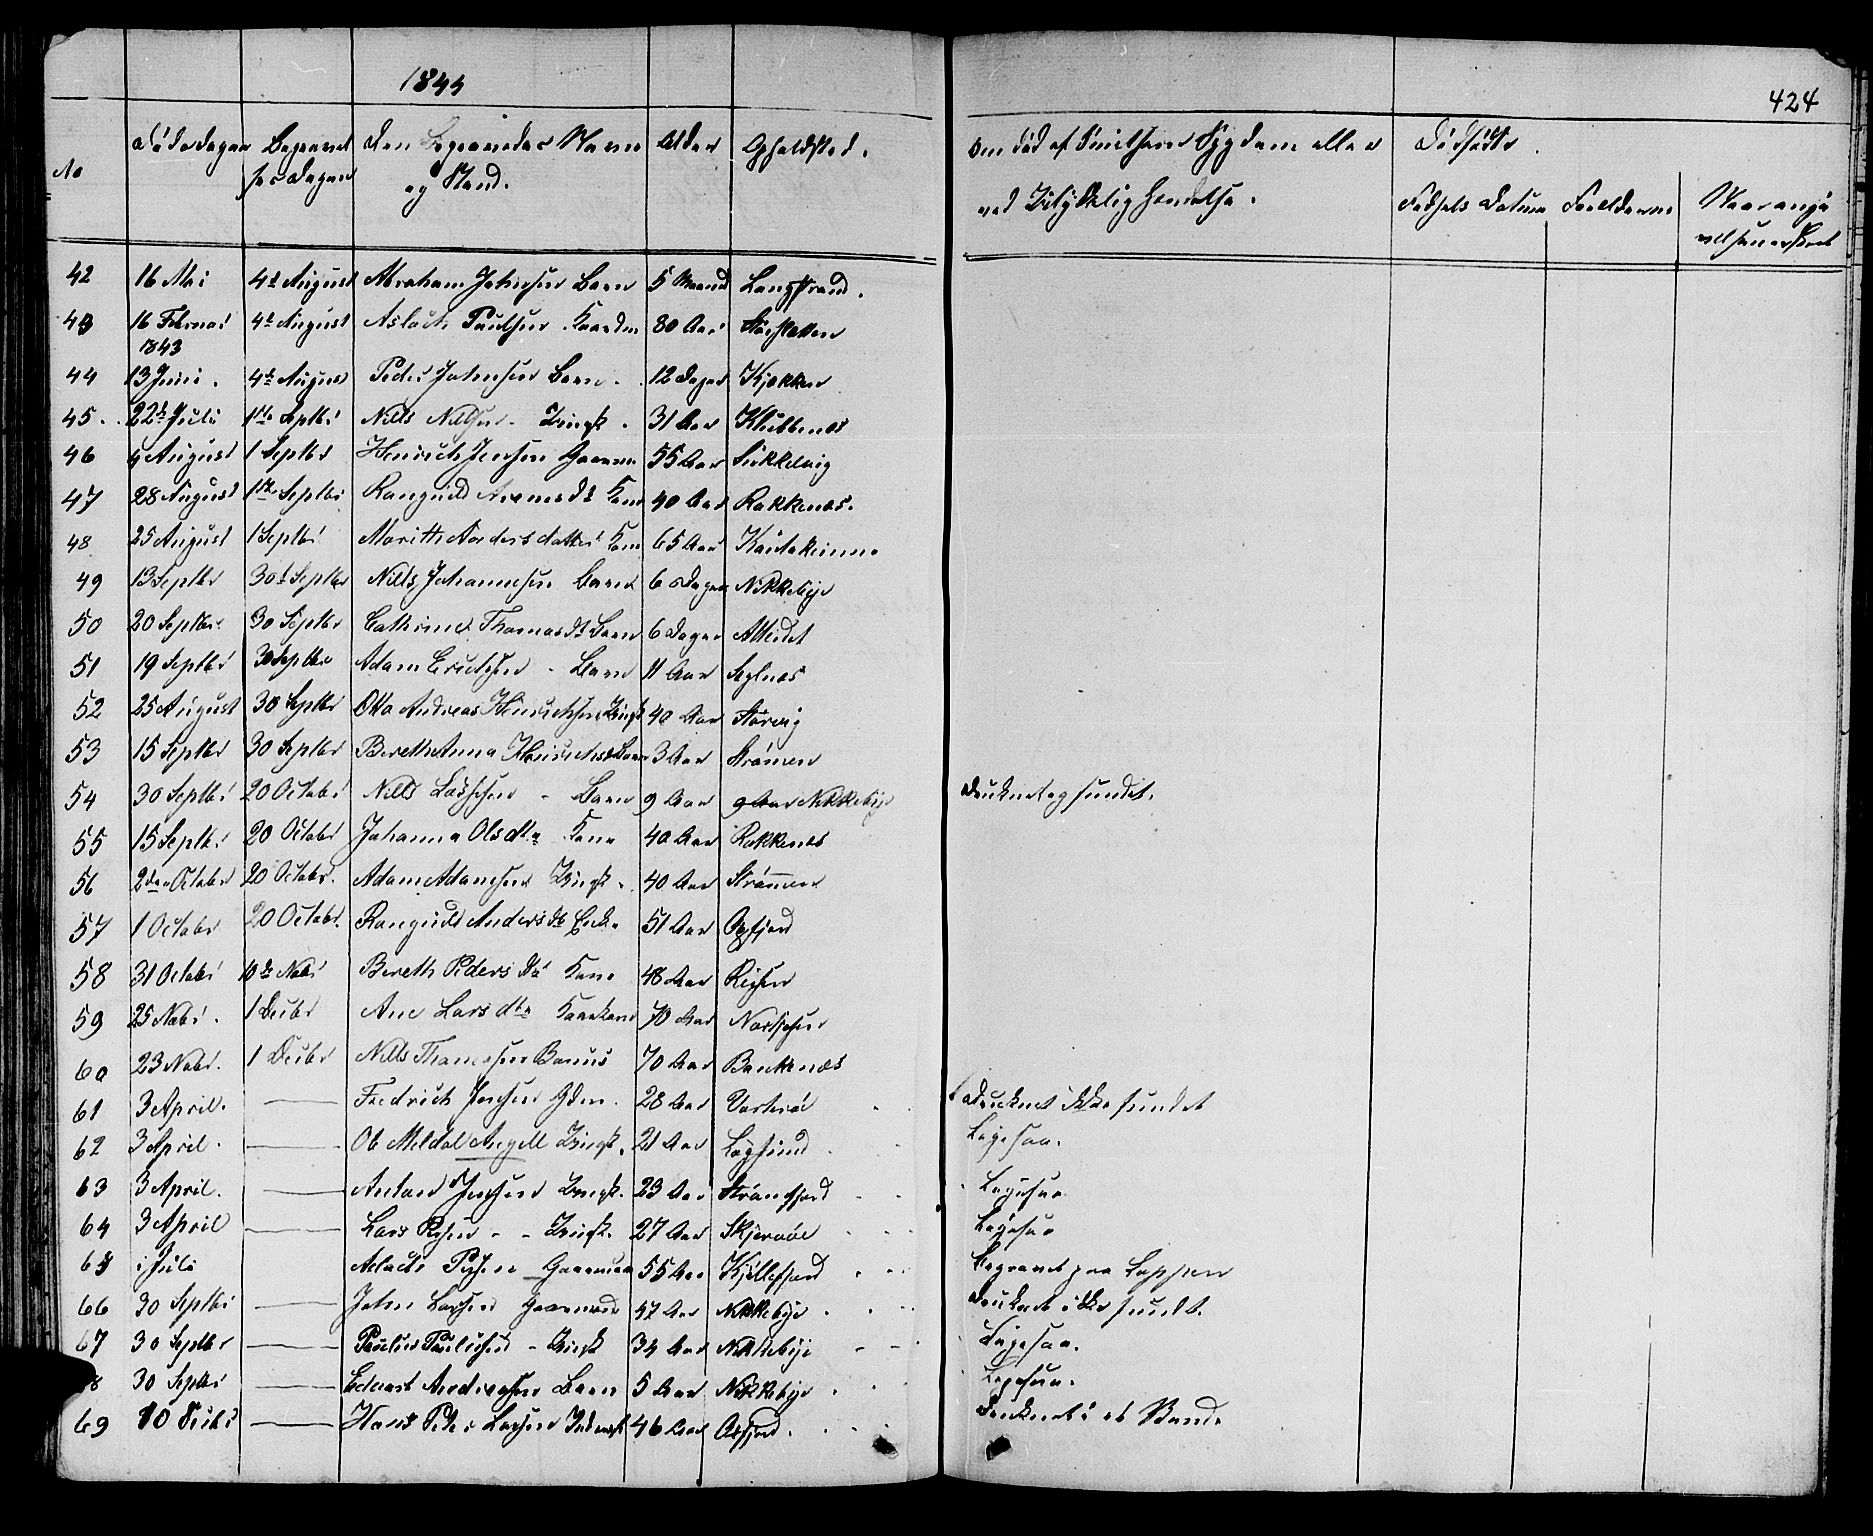 1844
424
No Dødsdagen Begravelsesdagen Den Begravedes Navn og Stand. Alder Opholdsted. Om død af Smitsom Sygdom eller ved Ulykkelig Hændelse. Dødfødte Fødsels Datum Forældrene
42 16 Mai 4de August Abraham Johnsen Barn 5 Maaned Langstrand.
43 16 Februar 1843 4de August Aslach Paulsen 80 Aar
44 13 Juni. 4de August Peder Johnsen Barn. 12 Dager Kjøkken
45. 22de Juli 1ste Septbr Nills Nillsen. Ungk. 31 Aar Klubbenes
46 4 August 1 Septbr Henrich Jensen Gaardm 55 Aar
47 28 August 1ste Septbr Ranguild Arnesdt Kone 40 Aar Rakkenes.
48 25 August 1 Septbr Marith Andersdatter Kone 65 Aar Kautokeino
49 13 Septbr 30te Septbr Nills Johannesen Barn 6 Dager Nikkebye
50 20 Septbr 30 Septbr Cathrine Thomasdt Barn 6 Dager Alteidet
51 19 Septbr 30 Septbr Adam Erichsen - Barn 11 Aar Seglnes
52 25 August 30 Septbr Otto Andreas Henrichsen Ungk 40 Aar Storvig
53 15 Septbr 30 Septbr Berethe Anna Henrichsdt Barn 3 Aar Strømen
54 30 Septbr 20 Octobr Nills Larssen - Barn 9 Aar 9 Aar Nikkebye Druknet og fundet.
55 15 Septbr 20 Octobr Johanna Olsdtr Kone 40 Aar Rakkenes
56 2den Octobr 20 Octobr. Adam Adamsen Ungk. 40 Aar Strømen
57 1 Octobr 20 Octobr. Ranguild Andersdt Enke 51 Aar Oxfjord
58 31 Octobr 10de Nobr Bereth Pedersdtr Kone 48 Aar
59 25 Nobr. 1 Decbr Ane Larsdtr 70 Aar
60 23 Nobr. 1 Decbr Nills Thomessen 70 Aar Bankenæs
61 3 April. — Fredrich Jensen 28 Aar Vorterøe Druknet ikke fundet
62 3 April. — Ob Meldal Angell Ungk. 21 Aar Løgsund Ligesaa.
63 3 April. — Anton Jensen Ungk. 23 Aar Straumfjord Ligesaa
64 3 April — Lars - - Ungk. 27 Aar Skjervøe Ligesaa
65 i Juli Aslach Gaardmand 55 Aar Kjøllefjord Begravet paa Loppen
66 30 Septbr — John Larsen Gaardmand 47 Aar Nikkebye. Druknet ikke fundet.
67 30 Septbr — Paulus Paulussen - Ungk 34 Aar Nikkebye - - Ligesaa.
8 30 Septbr — Edvart Andreassen Barn 5 Aar Nikkebye. Ligesaa.
69 10 Decbr — Hans Peder Larsen 46 Aar Oxfjord. Druknet